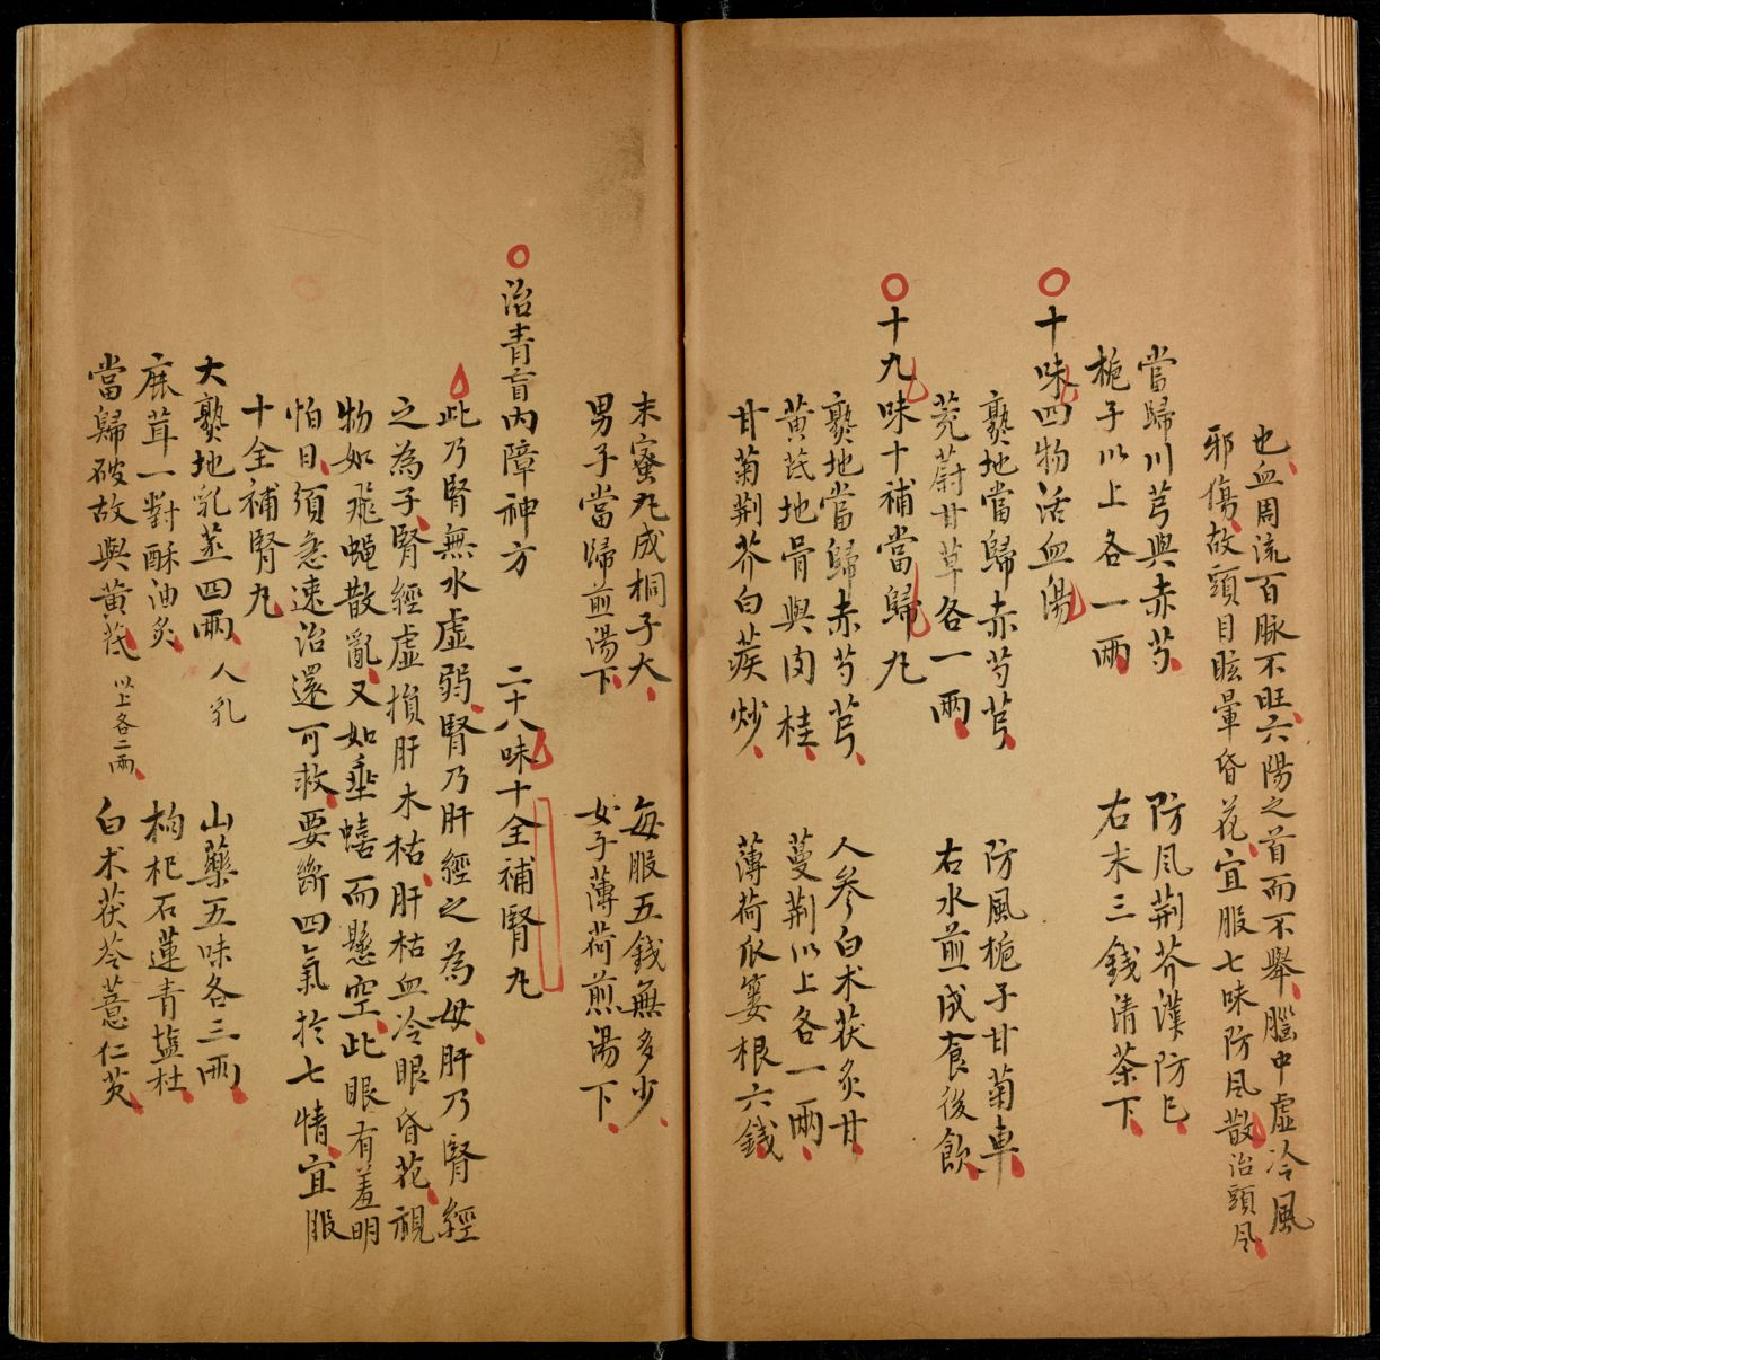 也血周流百脉不旺六陽之首而不舉腦中虛冷風
邪傷故頭目眩暈昏花宜服七味防風散治頭風
當歸川芎與赤芍 防風荆芥漢防已
梔子以上各一兩 右末三錢清茶下
十味四物活血湯
熟地當歸赤芍芎 防風梔子甘菊車
茺蔚甘草各一兩 右水煎成食後飲
十九味十補當歸丸
熟地當歸赤芍芎 人參白术茯炙甘
黄芪地骨與肉桂 蔓荆以上各一兩
甘菊荆芥白蒺炒 薄荷瓜蔞根六錢
末蜜丸成桐子大 每服五錢無多少
男子當歸煎湯下 女子薄荷煎湯下
治青盲内障神方 二十八味十全補腎丸
此乃腎無水虛弱腎乃肝經之為母肝乃腎經
之為子腎經虛損肝木枯肝枯血冷眼昏花視
物如飛蠅散亂又如垂蟢而懸空此眼有羞明
怕日須急速治還可救要斷四氣於七情宜服
十全補腎丸
大熟地乳蒸四兩人乳 山藥五味各三兩
麻茸一對酥油炙 枸杞石蓮青塩杜
當歸破故與黄芪以上各二兩 白术茯苓薏仁芡